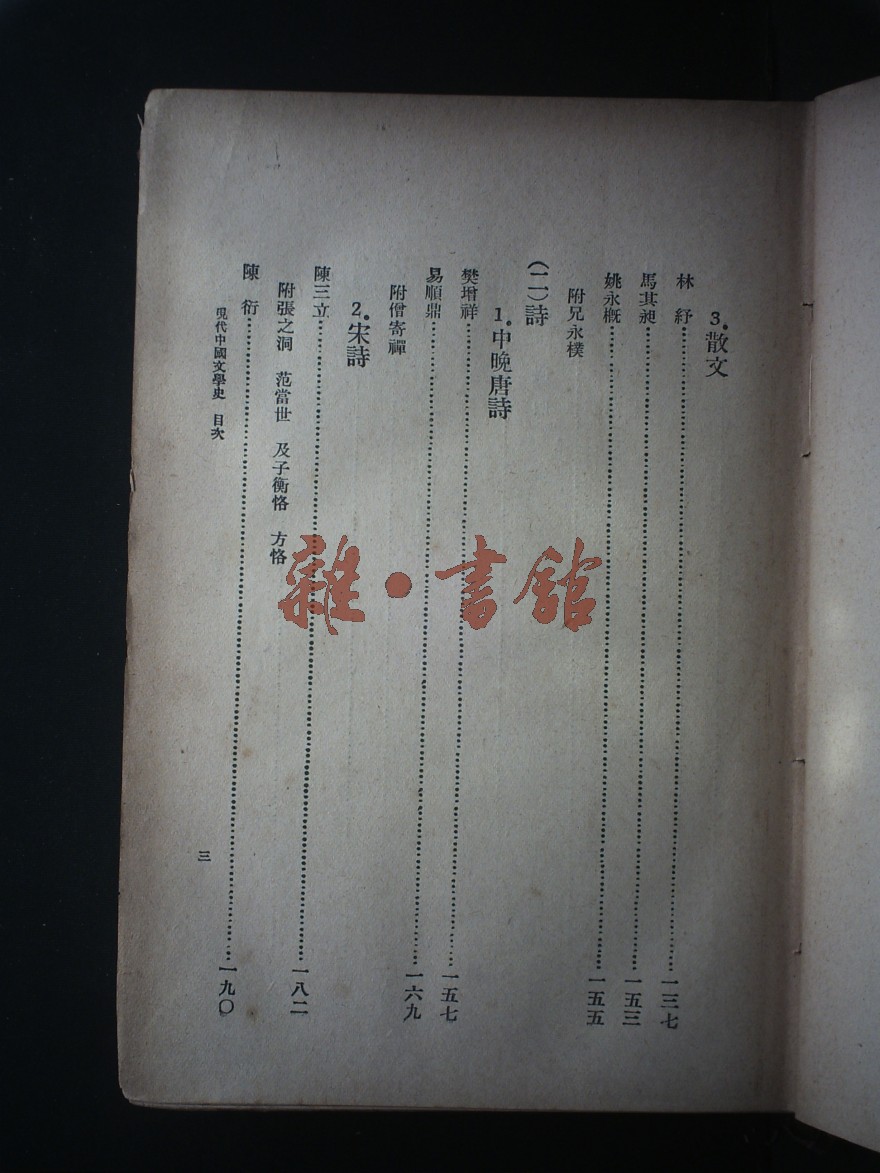 3.散文
林　紓……一三七
馬其昶……一五三
姚永概……一五五
附兄永樸
(二)詩
1.中晚唐詩
樊增祥……一五七
易順鼎……一六九
附僧寄禪
2.宋詩
陳三立……一八二
附張之洞　范當世　及子衡恪　方恪
陳　衍……一九〇
現代中國文學史　目次
三
雜·書館